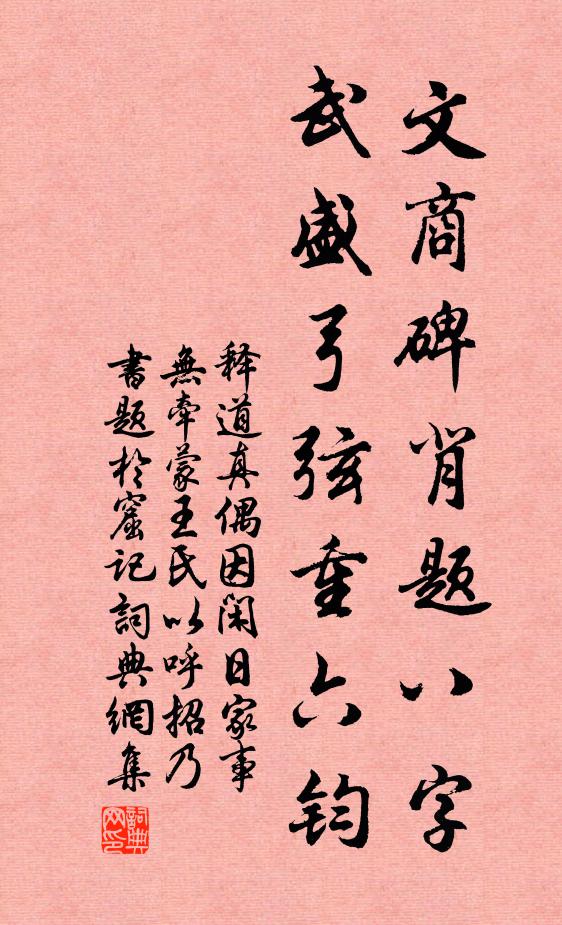 文商碑背题八字
武盛弓弦重六钧
释道真偶因闲日家事
無牵蒙王氏以呼招乃
書题於窟记詞典網集
詞典网印